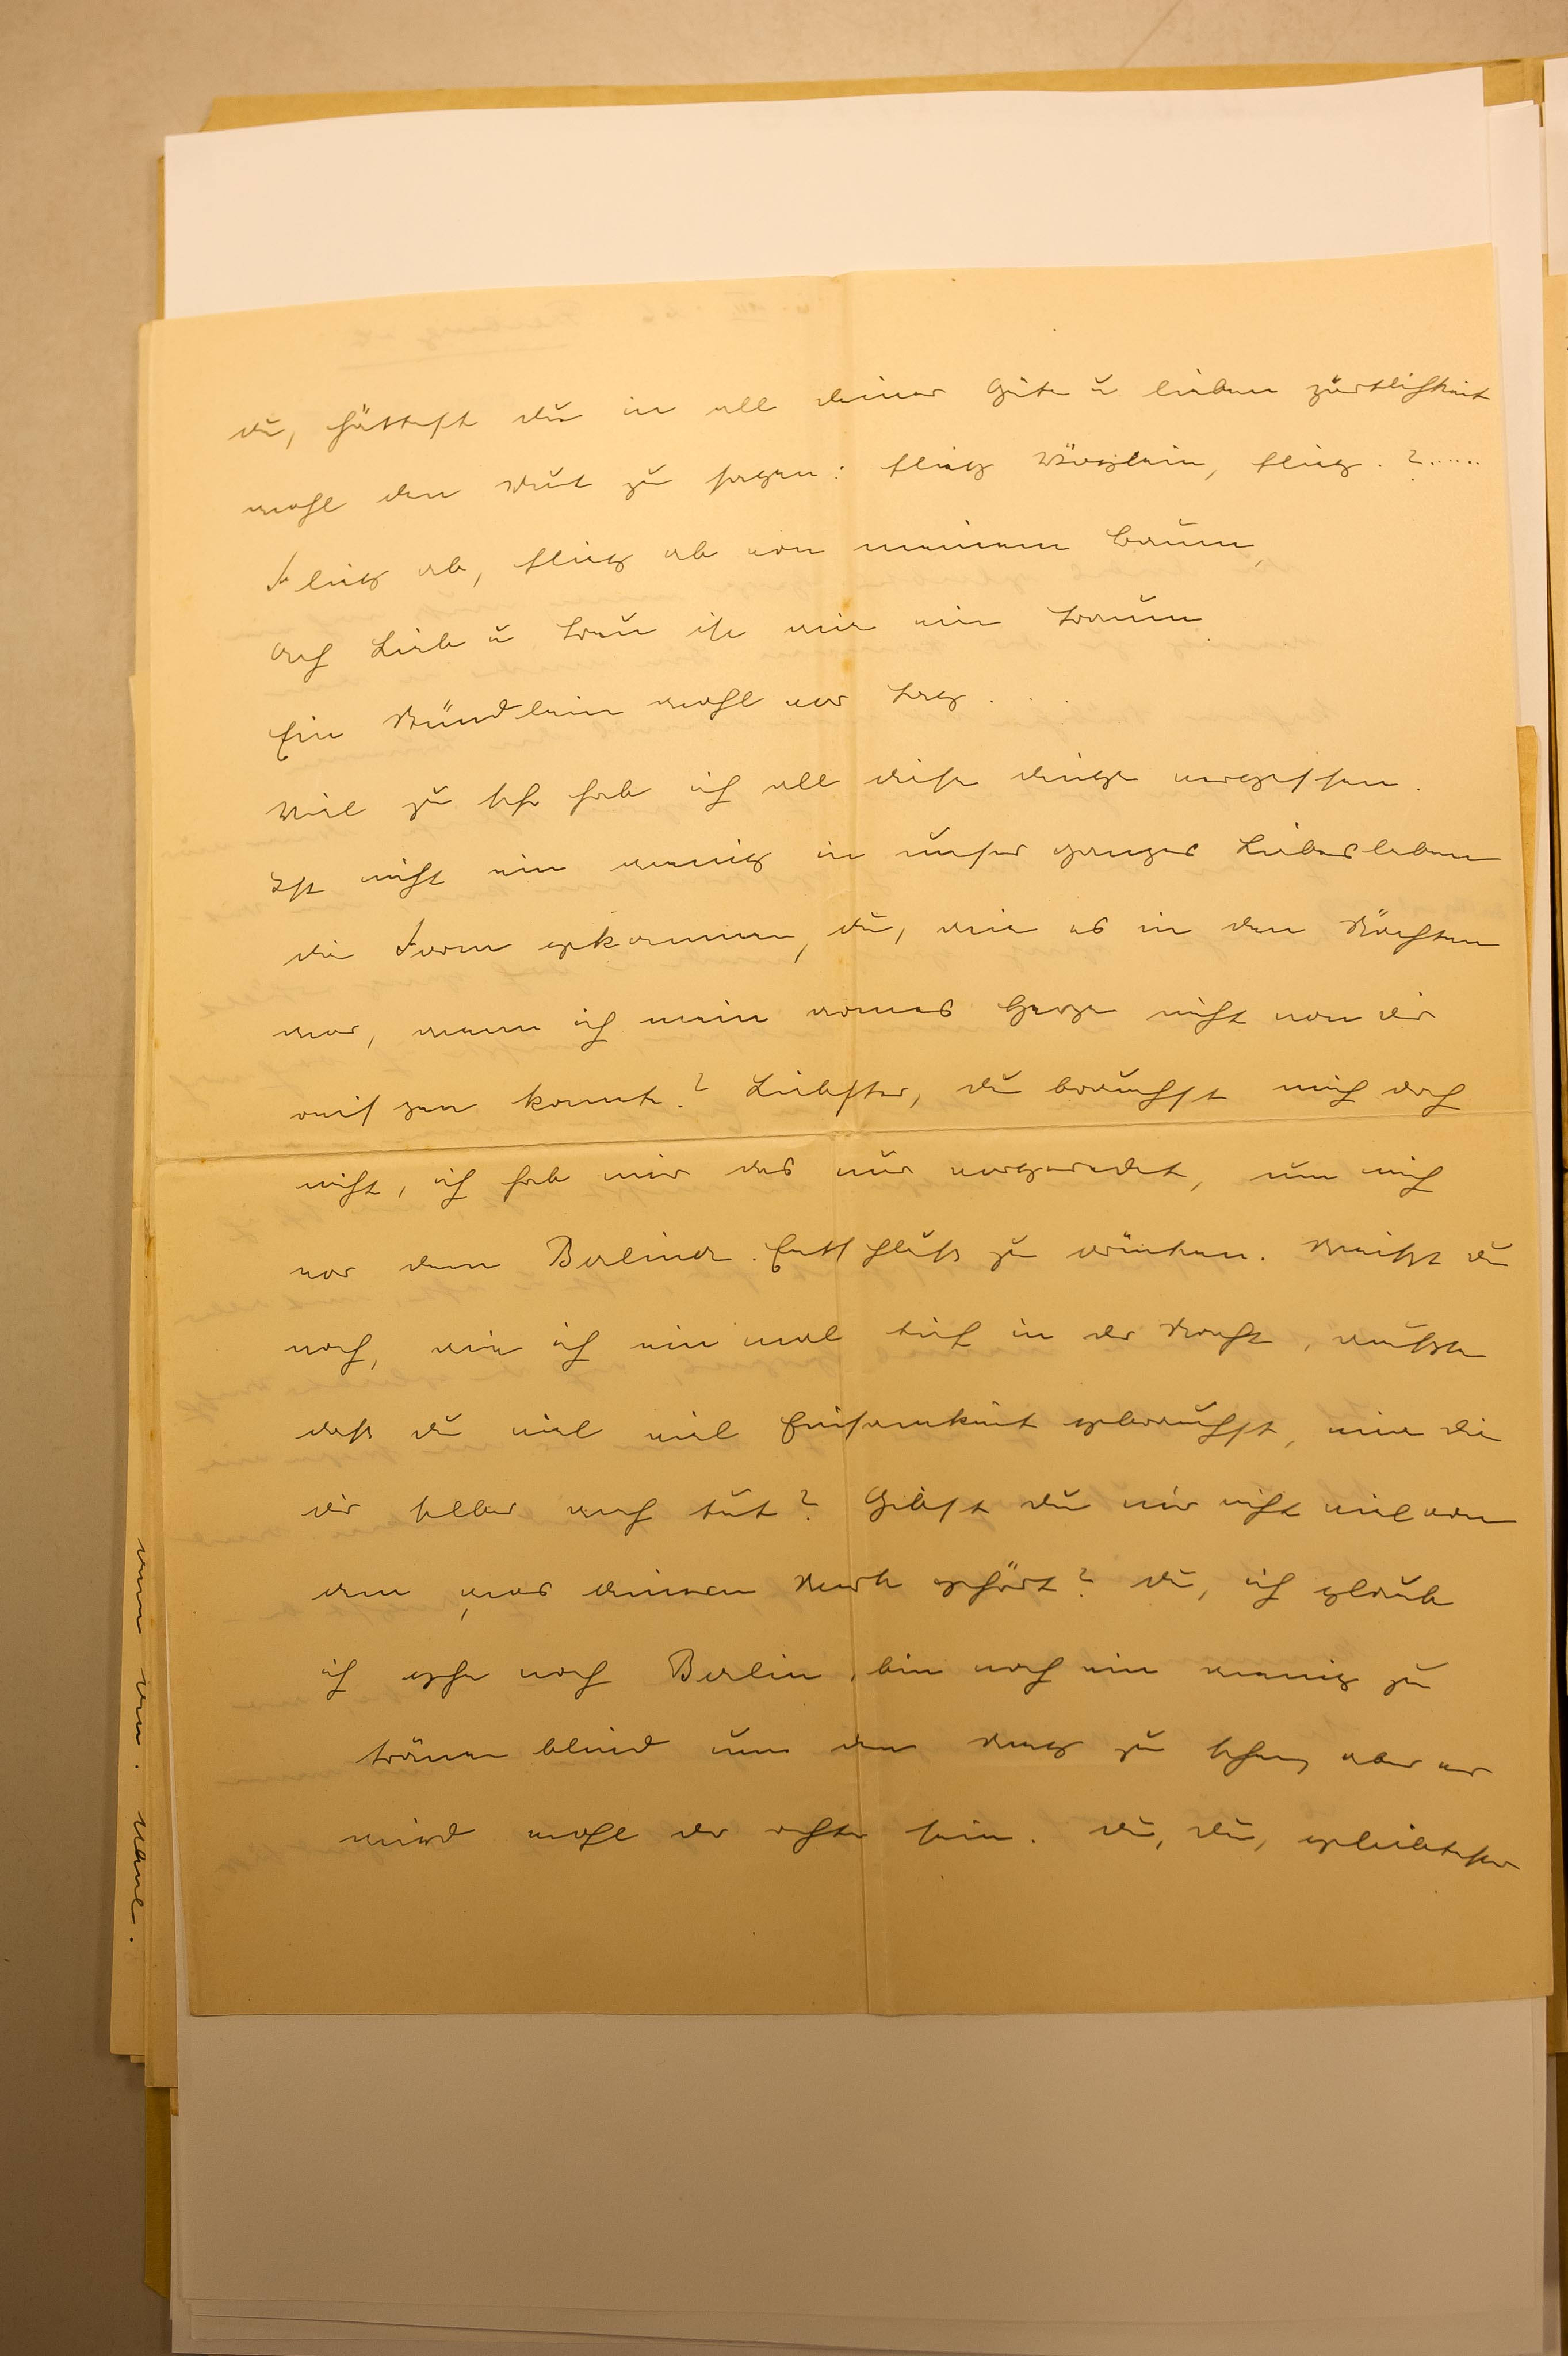 du, hättest du in all deiner Güte u lieben Zärtlichkeit
wohl den Mut zu sagen: flieg Vöglein, flieg. ? .....
Flieg ab, flieg ab von meinem Baum,
Ach Lieb u Treu ist wie ein Traum
Ein Stündlein wohl vor Tag . . .
Viel zu sehr hab ich all diese Dinge vergessen.
Ist nicht ein wenig in unser ganzes Liebesleben
die Form gekommen, du, wie es in den Nächten
war, wenn ich mein armes Herze nicht von dir
reissen konnte? Liebster, du brauchst mich doch
nicht, ich hab mir das nur vorgeredet, um mich
vor dem Berliner Entschluss zu drücken. Weisst du
noch, wie ich ein mal tief in der Nacht, wusste
dass du viel viel Einsamkeit gebrauchst, wie die
dir selber weh tut? Gibst du mir nicht viel von
dem was deinem Werk gehört? Du, ich glaube
ich gehe nach Berlin, bin noch ein wenig zu
tränen blind um den Weg zu sehen, aber er
wird wohl der rechte sein. Du, Du, geliebtester